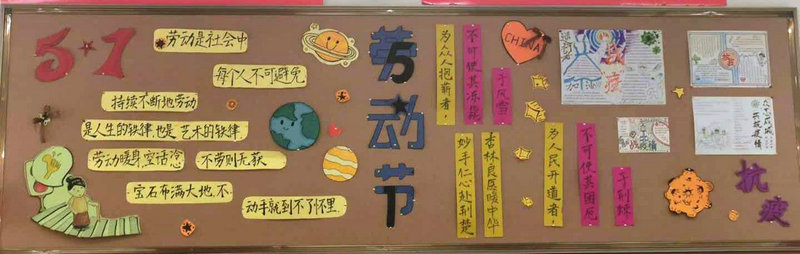 5 1
劳动是社会中
每个人不可避免
持续不断地劳动
是人生的铁律,也是艺术的铁律.
劳动暖身空话冷
不劳则无获
宝石布满大地,不
动手就到不了怀里.
劳动节
为众人抱薪者,
不可使其冻毙
于风雪
CHINA
杏林良医暖中华
妙手仁心赴荆楚
为人民开道者,
不可使其困厄
于荆棘
加油
抗疫
众志成城
共抗疫情
抗疫